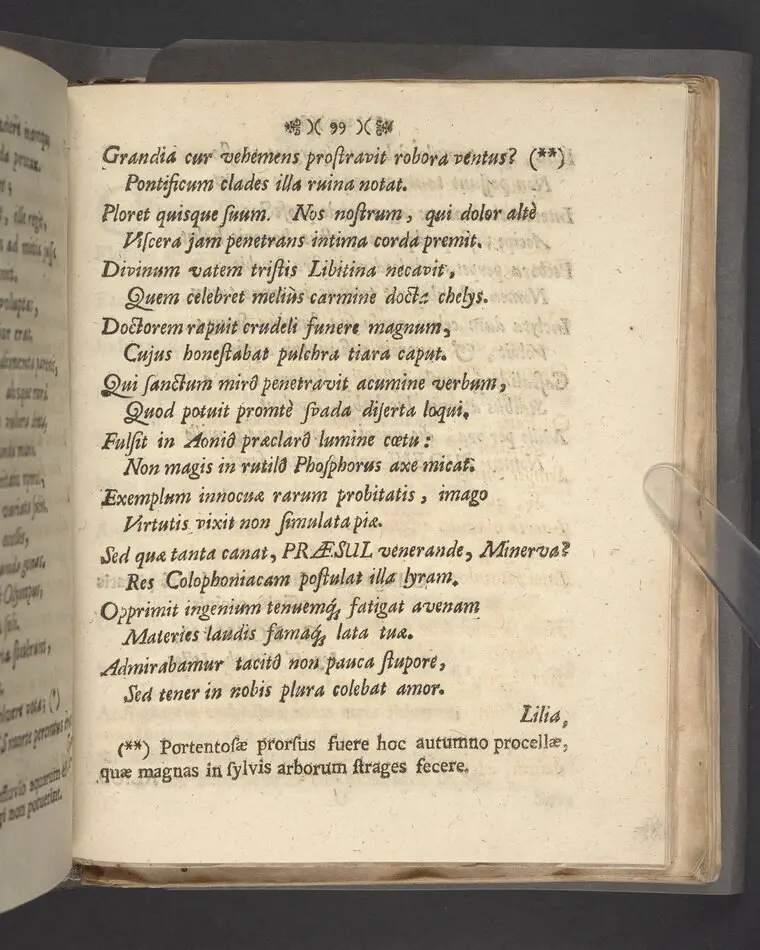 )( 99 )(
Grandia cur vehemens proſtravit robora ventus? (**)
Pontificum clades illa ruina notat.
Ploret quisque ſuum. Nos noſtrum, qui dolor altè
Viſcera jam penetrans intima corda premit.
Divinum vatem triſtis Libitina necavit,
Quem celebret meliùs carmine docta chelys.
Doctorem rapuit crudeli funere magnum,
Cujus honeſtabat pulchra tiara caput.
Qui ſanctum mirô penetravit acumine verbum,
Quod potuit promtè ſvada diſerta loqui.
Fulſit in Aoniô præclarô lumine cœtu:
Non magis in rutilô Phoſphorus axe micat.
Exemplum innocuæ rarum probitatis, imago
Virtutis vixit non ſimulata piæ.
Sed quæ tanta canat, PRÆSUL venerande, Minerva?
Res Colophoniacam poſtulat illa lyram.
Opprimit ingenium tenuemq́; fatigat avenam
Materies laudis famaq́; lata tuæ.
Admirabamur tacitô non pauca ſtupore,
Sed tener in nobis plura colebat amor.
Lilia,
(**) Portentoſæ prorſus fuere hoc autumno procellæ,
quæ magnas in ſylvis arborum ſtrages fecere.